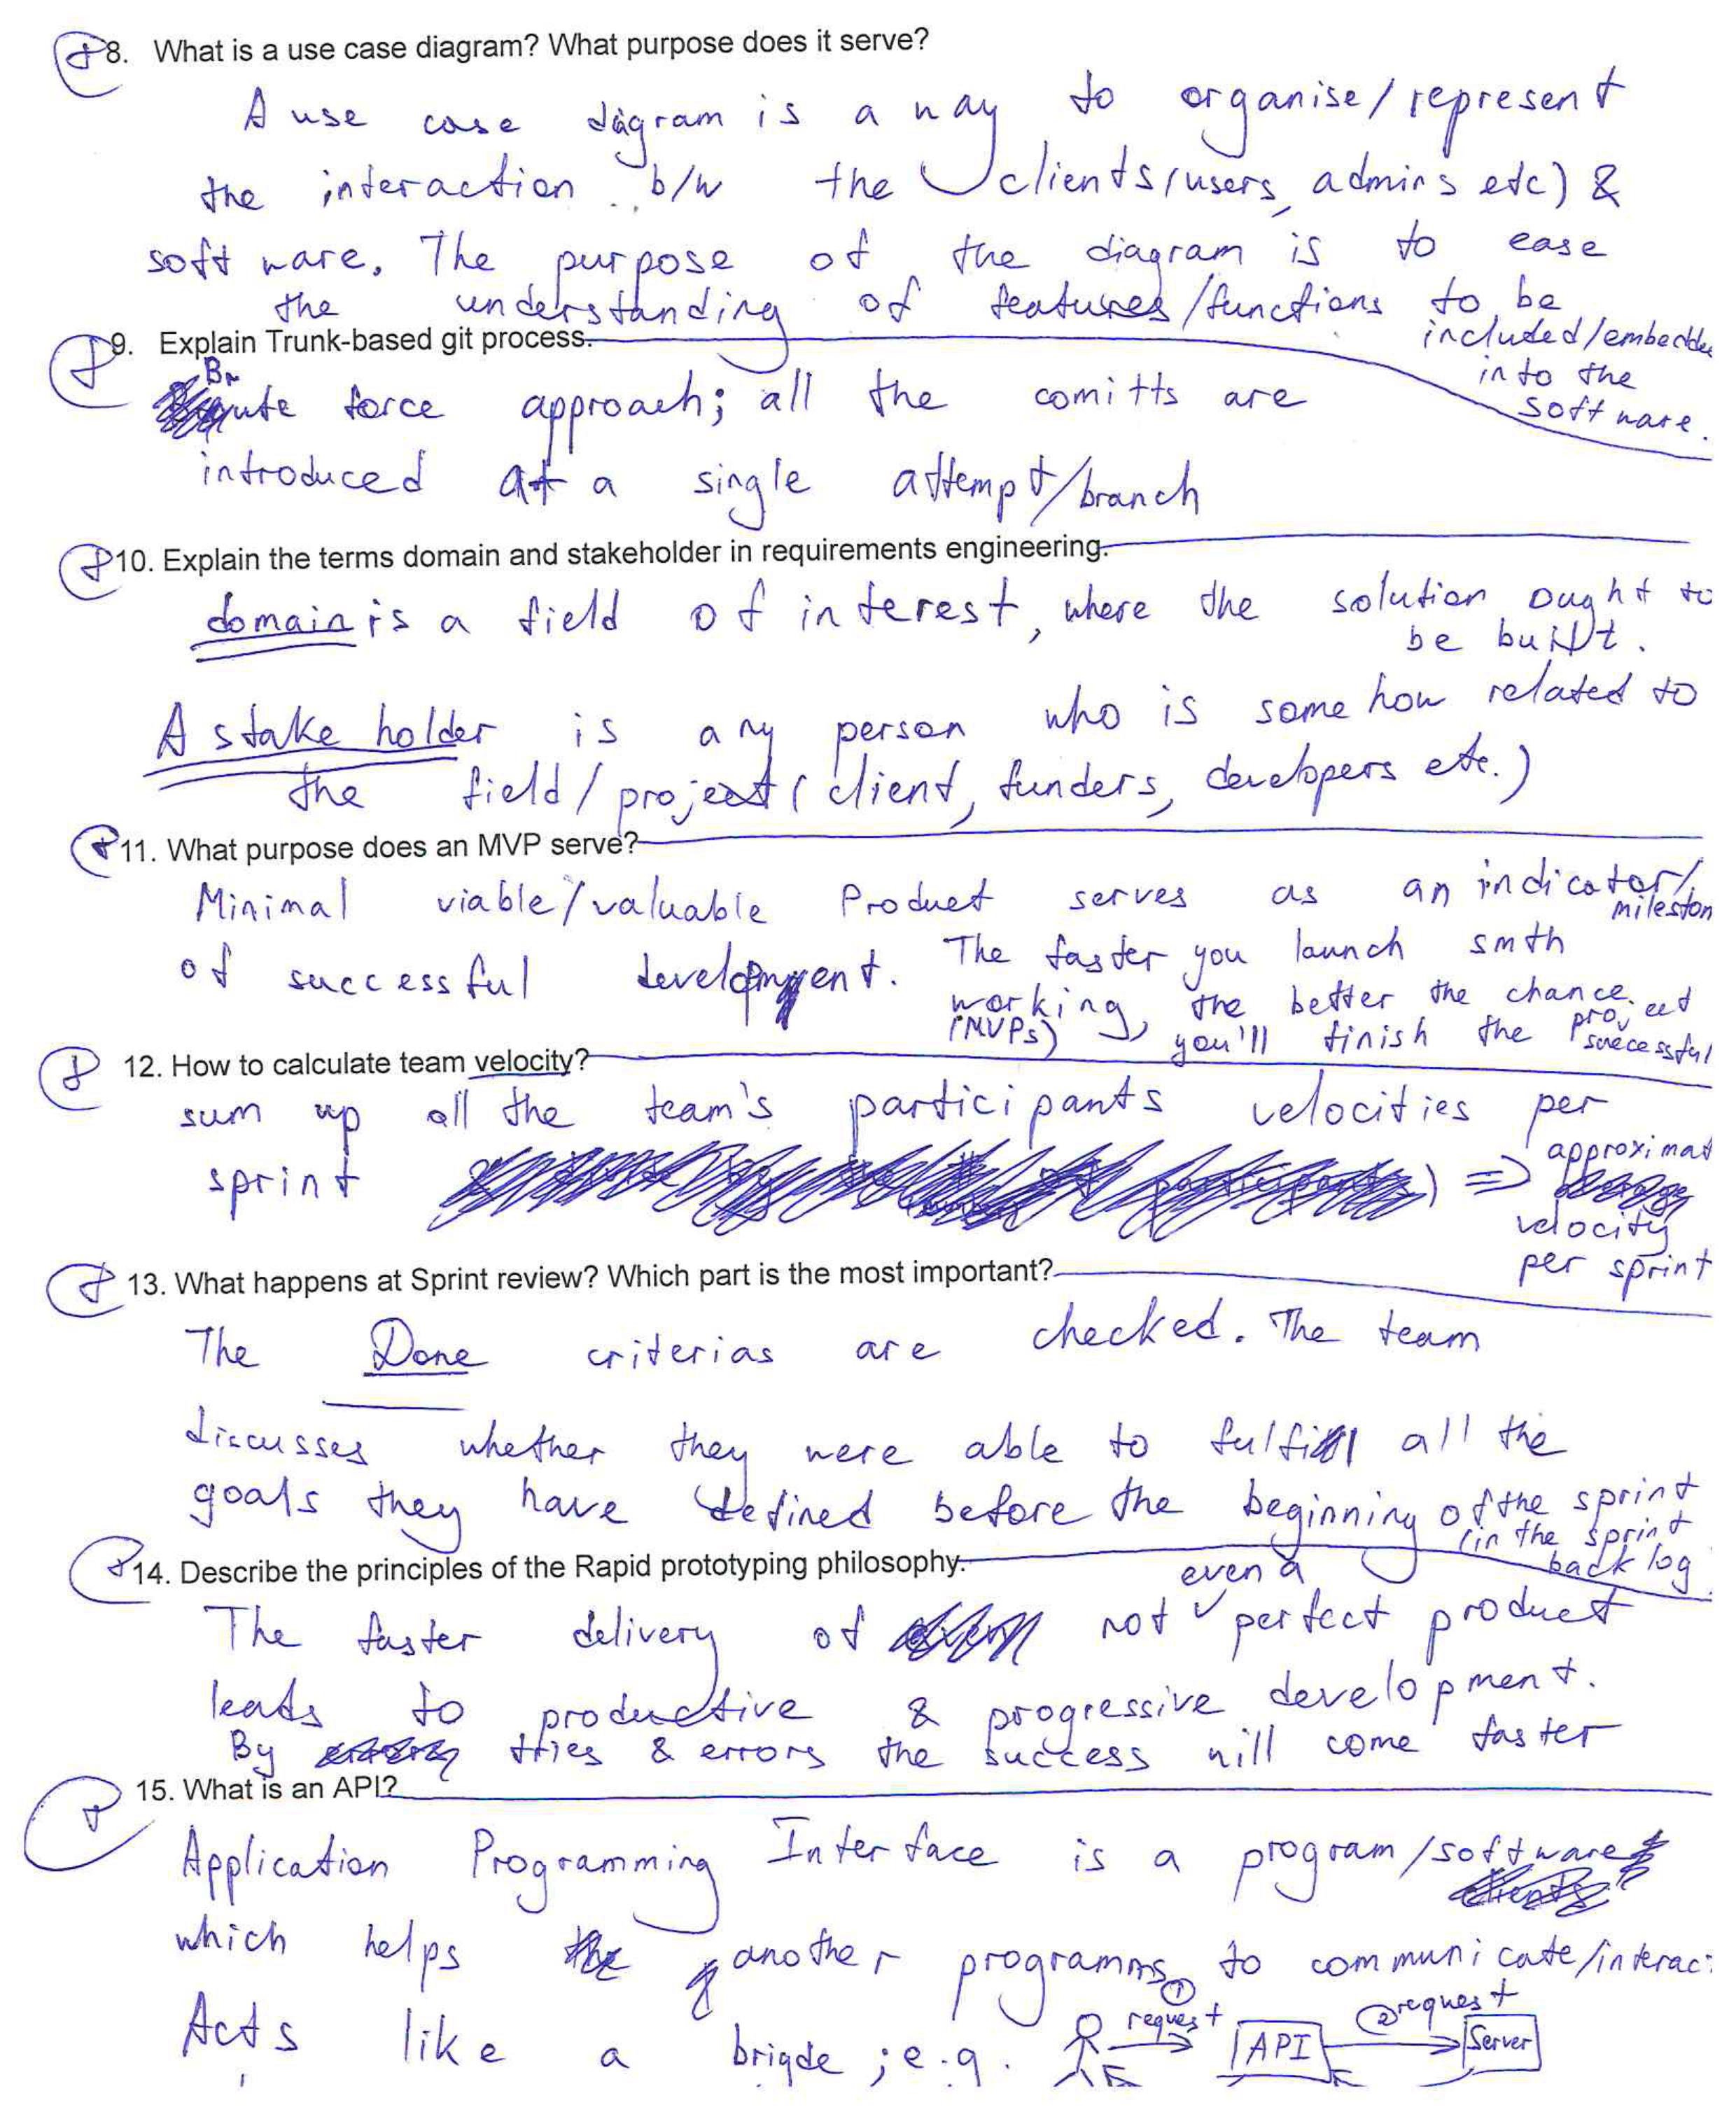 8. What is a use case diagram? What purpose does it serve?
A use case diagram is a way to organise/represent
the interaction b/w the clients(users, admins etc) &
software. The purpose of the diagram is to ease
the understanding of features/functions to be
included/embedde
into the
software.
9. Explain Trunk-based git process.
Brute force approach; all the comitts are
introduced at a single attempt/branch
10. Explain the terms domain and stakeholder in requirements engineering.
domain is a field of interest, where the solution ought to
be built.
A stake holder is any person who is somehow related to
the field/project (client, funders, developers etc.)
11. What purpose does an MVP serve?
Minimal viable/valuable Product serves as an indicator/
mileston
of successful development. The faster you launch smth
working, the better the chance
(MVPs) you'll finish the project
successful
12. How to calculate team velocity?
sum up all the team's participants velocities per
sprint ) => approximat
velocity
per sprint
13. What happens at Sprint review? Which part is the most important?
The Done criterias are checked. The team
discusses whether they were able to fulfill all the
goals they have defined before the beginning of the sprint
(in the sprint
back log
14. Describe the principles of the Rapid prototyping philosophy.
even a
The faster delivery of not perfect product
leads to productive & progressive development.
By tries & errors the success will come faster
15. What is an API?
Application Programming Interface is a program/software
which helps another programms to communicate/interac
Acts like a brigde ; e.g. 1 request API 2 request Server